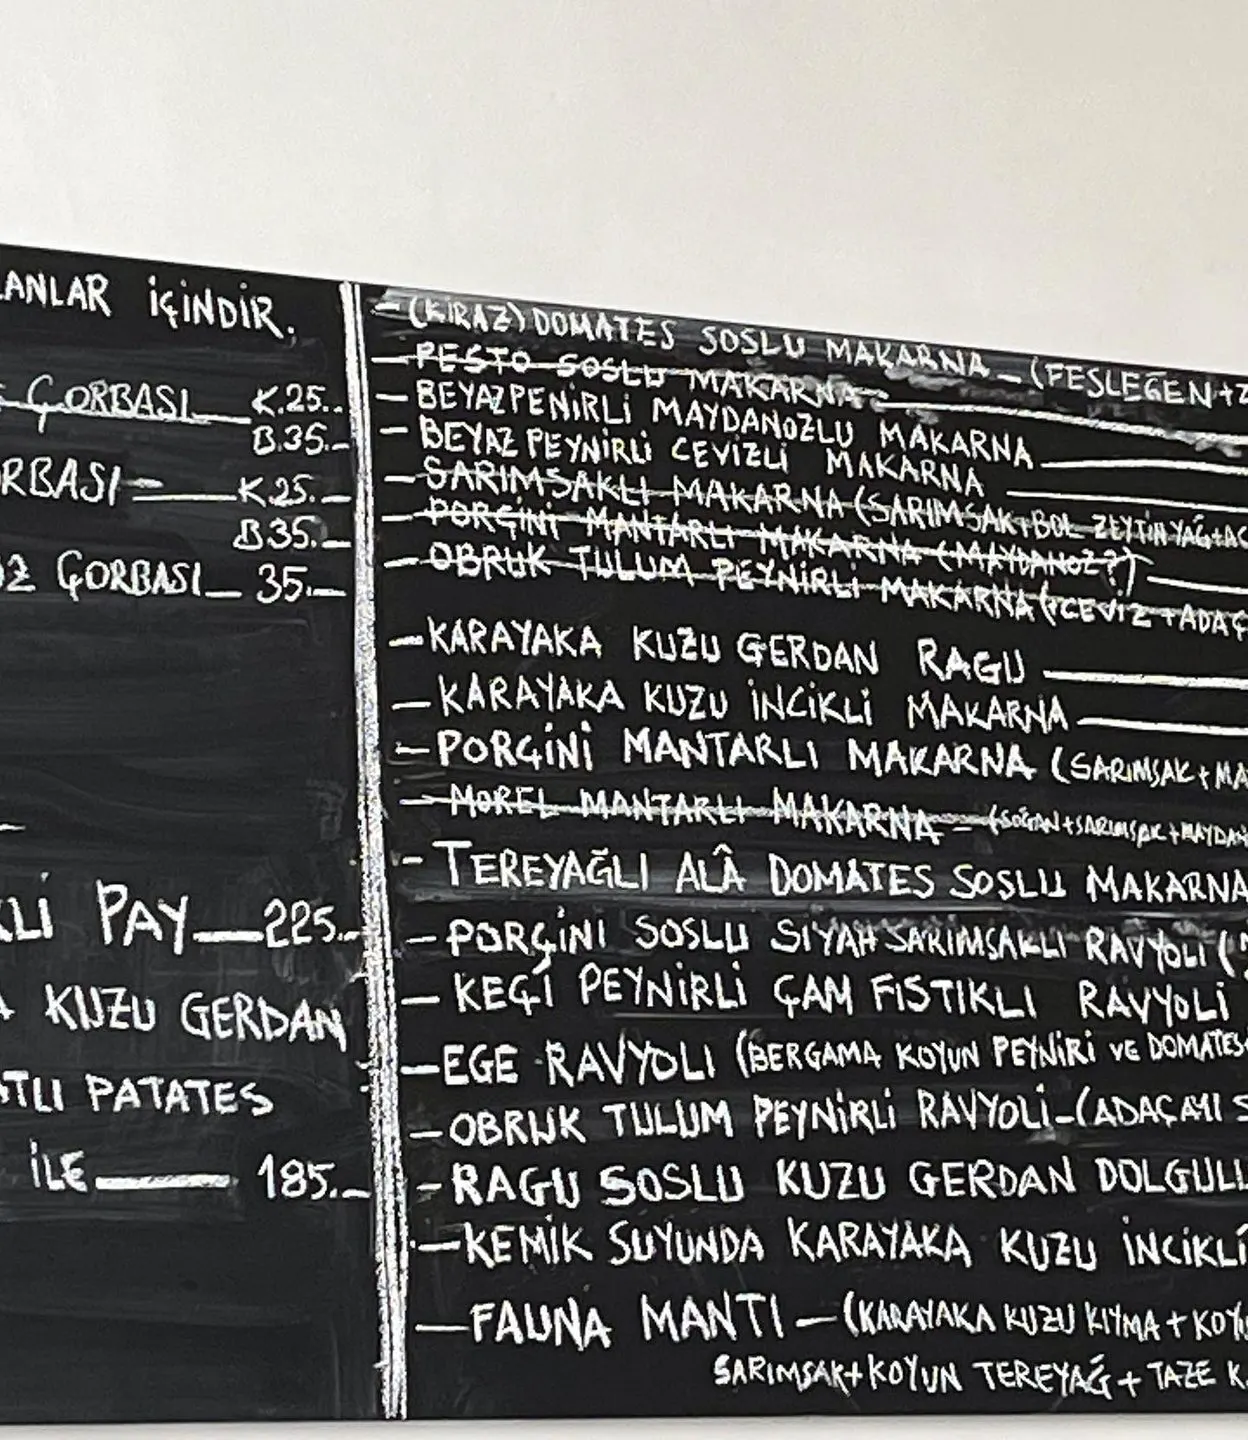 LANLAR İÇİNDİR.
ÇORBASI K.25.
B.35.
RBASI K.25.
B.35.
Z ÇORBASI 35.
Lİ PAY 225.
KUZU GERDAN
TLI PATATES
İLE 185.
- (KİRAZ) DOMATES SOSLU MAKARNA - (FESLEĞEN+Z
- PESTO SOSLU MAKARNA
- BEYAZPENİRLİ MAYDANOZLU MAKARNA
- BEYAZ PEYNİRLİ CEVİZLİ MAKARNA
- SARIMSAKLI MAKARNA (SARIMSAK+BOL ZEYTİN YAĞ+AC
- PORÇİNİ MANTARLI MAKARNA (MAYDANOZ?)
- OBRUK TULUM PEYNİRLİ MAKARNA (+CEVİZ+ADAÇ
- KARAYAKA KUZU GERDAN RAGU
- KARAYAKA KUZU İNCİKLİ MAKARNA
- PORÇİNİ MANTARLI MAKARNA (SARIMSAK+MA
- MOREL MANTARLI MAKARNA - (SOĞAN+SARIMSAK+MAYDAN
- TEREYAĞLI ALÂ DOMATES SOSLU MAKARNA
- PORÇİNİ SOSLU SİYAH SARIMSAKLI RAVYOLİ (
- KEÇİ PEYNİRLİ ÇAM FISTIKLI RAVYOLİ
- EGE RAVYOLİ (BERGAMA KOYUN PEYNİRİ VE DOMATES
- OBRUK TULUM PEYNİRLİ RAVYOLİ - (ADAÇAYI S
- RAGU SOSLU KUZU GERDAN DOLGULU
- KEMİK SUYUNDA KARAYAKA KUZU İNCİKLİ
- FAUNA MANTI - (KARAYAKA KUZU KIYMA + KOYU
SARIMSAK+KOYUN TEREYAĞ + TAZE K